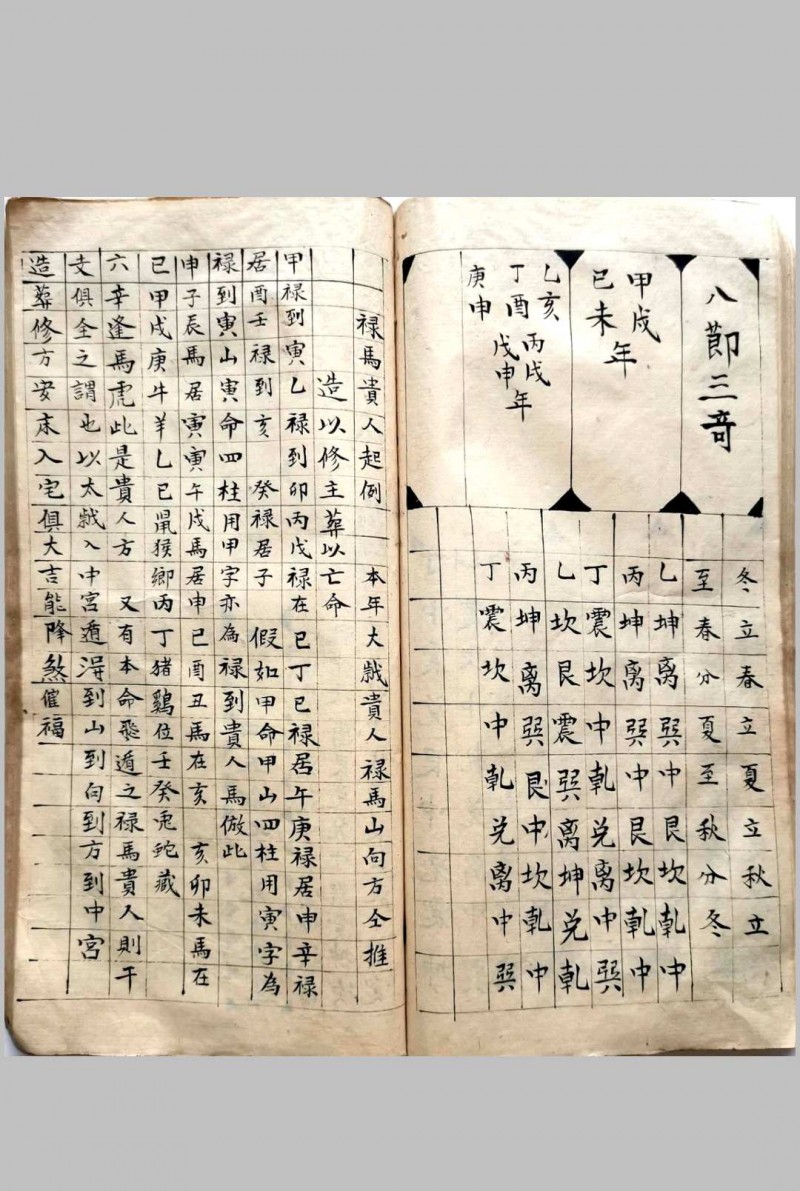 八節三奇
甲戌
己未年
乙亥 丙戌
丁酉 戊申年
庚申
冬立春立夏立秋立
至春分夏至秋分冬
乙坤离巽中艮坎乾中
丙坤离巽中艮坎乾中
丁震坎中乾兑离中巽
乙坎艮震巽离坤兑乾
丙坤离巽艮中坎乾中
丁震坎中乾兑离中巽
禄馬貴人起例 本年大歳貴人禄馬山向方仝推
造以修主葬以亡命
甲禄到寅乙禄到卯丙戊禄在巳丁己禄居午庚禄居申辛禄
居酉壬禄到亥 癸禄居子 假如甲命甲山四柱用寅字為
禄到寅山寅命四柱用甲字亦為禄到貴人馬倣此
申子辰馬居寅寅午戌馬居申巳酉丑馬在亥 亥卯未馬在
巳甲戊庚牛羊乙己鼠猴鄉丙丁猪鷄位壬癸兎蛇藏
六辛逢馬虎此是貴人方 又有本命飛遁之禄馬貴人則干
支俱全之謂也以太歳入中宮遁得到山到向到方到中宮
造葬修方安床入宅俱大吉能降煞催福